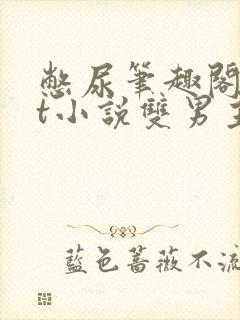 憋尿筆趣閣
t小說雙男主
藍色薔薇不流